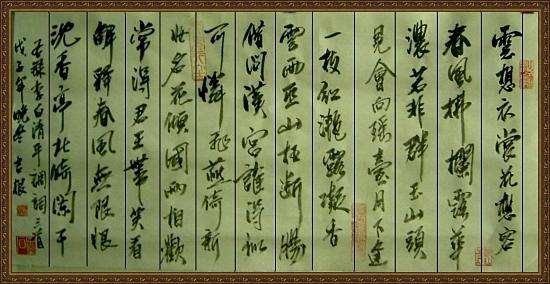 雲想衣裳花想容
春風拂欄露華
濃若非群玉山頭
見會向瑤臺月下逢
一枝紅灩露凝香
雲雨巫山枉斷腸
借問漢宮誰得似
可憐飛燕倚新
妝名花傾國兩相歡
常得君王帶笑看
解釋春風無限恨
沈香亭北倚闌干
李白清平調詞三首
戊子年晚冬